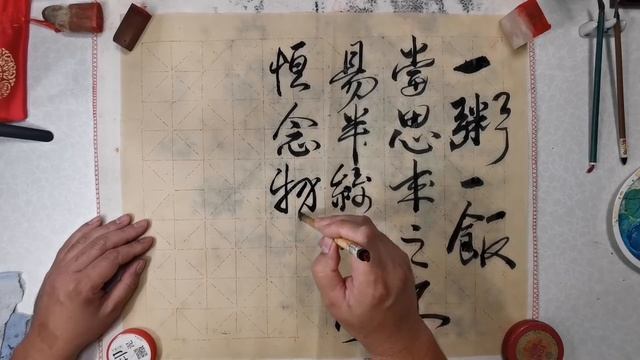 一粥一飯
當思来之不
易半絲
恒念物